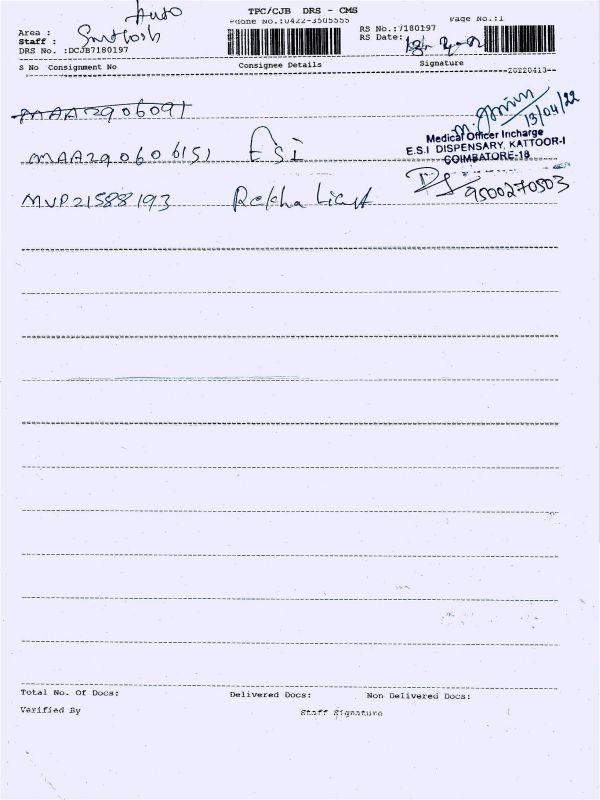 Auto
TPC/CJB DRS - CMS
Area :
Phone No.:0422-3505555
Page No.:1
Staff : Santhosh
RS No.:7180197
DRS No. :DCJB7180197
RS Date:
S No Consignment No Consignee Details Signature
20220413
MAA2906091
13/04/22
Medical Officer Incharge
MAA290606151 ESI
E.S.I DISPENSARY, KATTOOR-I
COIMBATORE-18
9500270503
MVP21588193 Rekha
Total No. Of Docs: Delivered Docs: Non Delivered Docs:
Verified By Staff Signature